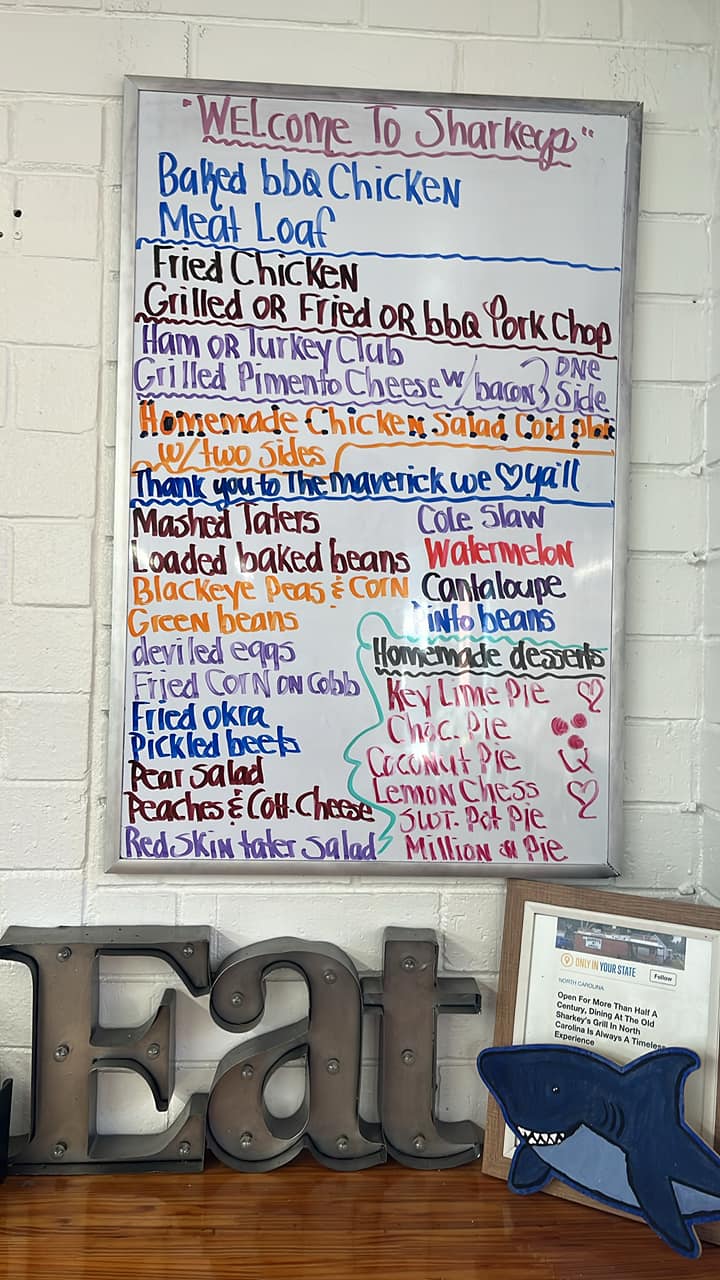 "WELcome To Sharkeys"
Baked bbQ Chicken
Meat Loaf
Fried Chicken
Grilled OR Fried OR bbQ Pork Chop
Ham OR Turkey Club
Grilled Pimento Cheese w/bacon } ONE Side
Homemade Chicken Salad Cold plate
w/two Sides
Thank you to The maverick we ♡ ya'll
Mashed Taters
Loaded baked beans
Blackeye Peas & CORN
Green beans
deviled eggs
Fried CORN ON Cobb
Fried okra
Pickled beets
Pear Salad
Peaches & Cott. Cheese
Red Skin tater Salad
Cole Slaw
Watermelon
Cantaloupe
Pinto beans
Homemade desserts
Key Lime Pie
Choc. Pie
Coconut Pie
Lemon Chess
Swt. Pot Pie
Million $ Pie
Eat
ONLY IN YOUR STATE
Follow
NORTH CAROLINA
Open For More Than Half A
Century, Dining At The Old
Sharkey's Grill In North
Carolina Is Always A Timeless
Experience